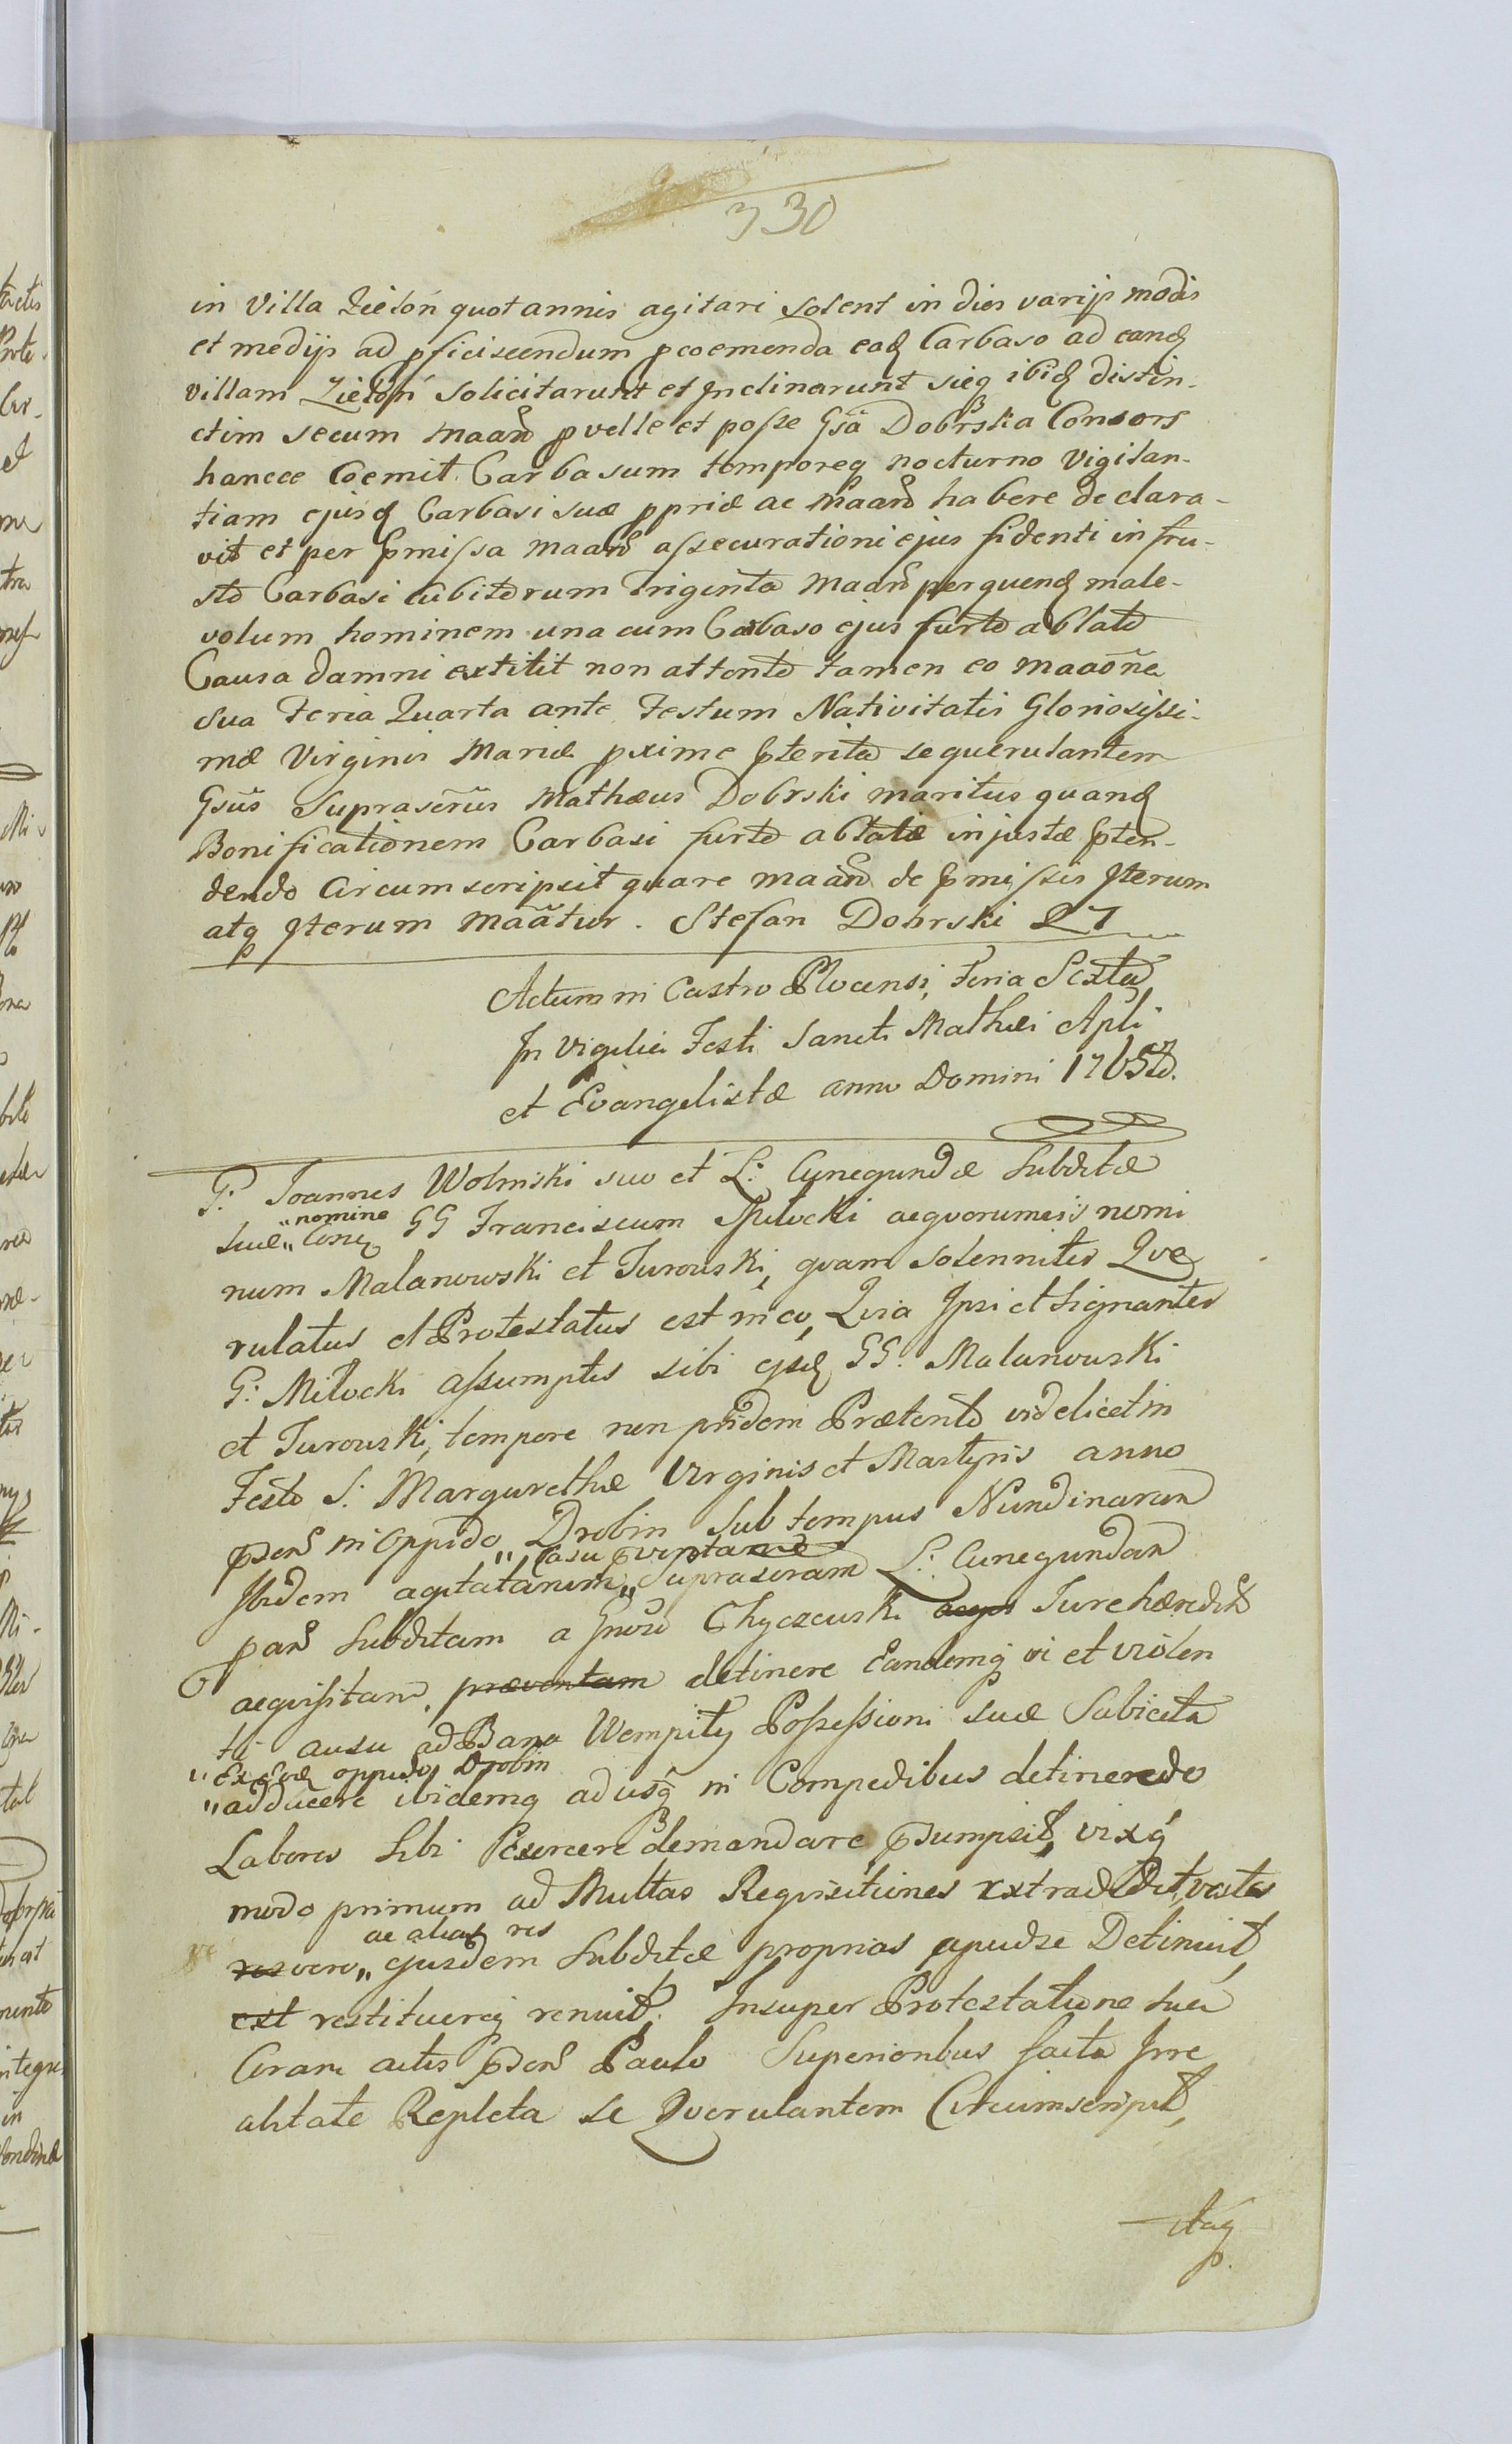 330
in Villa Ziełoń quot annis agitari solent in dies varijs modis
et medijs ad pficiscendum pcoemenda eadq Carbaso ad eandq
villam Zieloń solicitarunt et Inclinarunt sicq ibidq distin-
ctim secum maand pvelle et posse Gsa Dobrska Consors
hancce Coemit Carbasum temporeq nocturno Vigilan-
tiam ejusq Carbasi suæ ppriæ ac Maand habere declara-
vit et per pmissa maand assecurationi ejus fidenti in fru-
sto Carbasi cubitorum Triginta Maand per quendq male-
volum hominem una cum Carbaso ejus furto ablato
Causa damni extitit non attento tamen eo maaone
sua Feria Quarta ante Festum Nativitatis Gloriosissi-
mæ Virginis Mariæ pxime pterita se querulantem
Gsus Suprascrus Mathæus Dobrski maritus quandq
Bonificationem Carbasi furto ablatæ injustæ pten-
dendo Circumscripsit quare maand de pmissis Iterum
atq Iterum Maatur. Stefan Dobrski
Actum in Castro Plocensi, Feria Sexta
In Vigilia Festi Sancti Mathæi Apli
et Evangelistæ anno Domini 1765to.
G: Joannes Wolmski suo et L: Cunegundæ Subditæ
suæ „nomine Conq GG Franciscum Milocki aequorumcis nomi
num Malanowski et Turowski, quam solenniter Que
rulatus et Protestatus est in eo, Quia Ipsi et Signanter
G: Milocki assumptis sibi ejsdq GG: Malanowski
et Turowski, tempore non pridem Præterito videlicet in
Festo S: Margarethæ Virginis et Martyris anno
psen in Oppido Drobin Sub tempus Nundinarum
Ibidem agitatarum „casu pventam „Suprascram L: Cunegundam
pan Subditam a Gnoso Chyczewski aeqs Jure hæredit
aequisitam, præventam detinere Eandemq vi et violen
ti ausu ad Bana Wempiły Possessioni suæ Subiecta
„Ex Eodq oppido Drobin
„adducere ibidemq ad usq in Compedibus detinere do
Labores Sibi Exercere demandare psumpsit, vixq
modo primum ad Multas Requisitiones extradidit, vestes
res vero „ac alias res ejusdem Subditæ proprias apud se Detinuit,
est restituereq renuit. Insuper Protestatione sua
Coram actis psen Paulo Superioribus facta Irre
alitate Repleta se Querulantem Circumscripsit,
Itaq